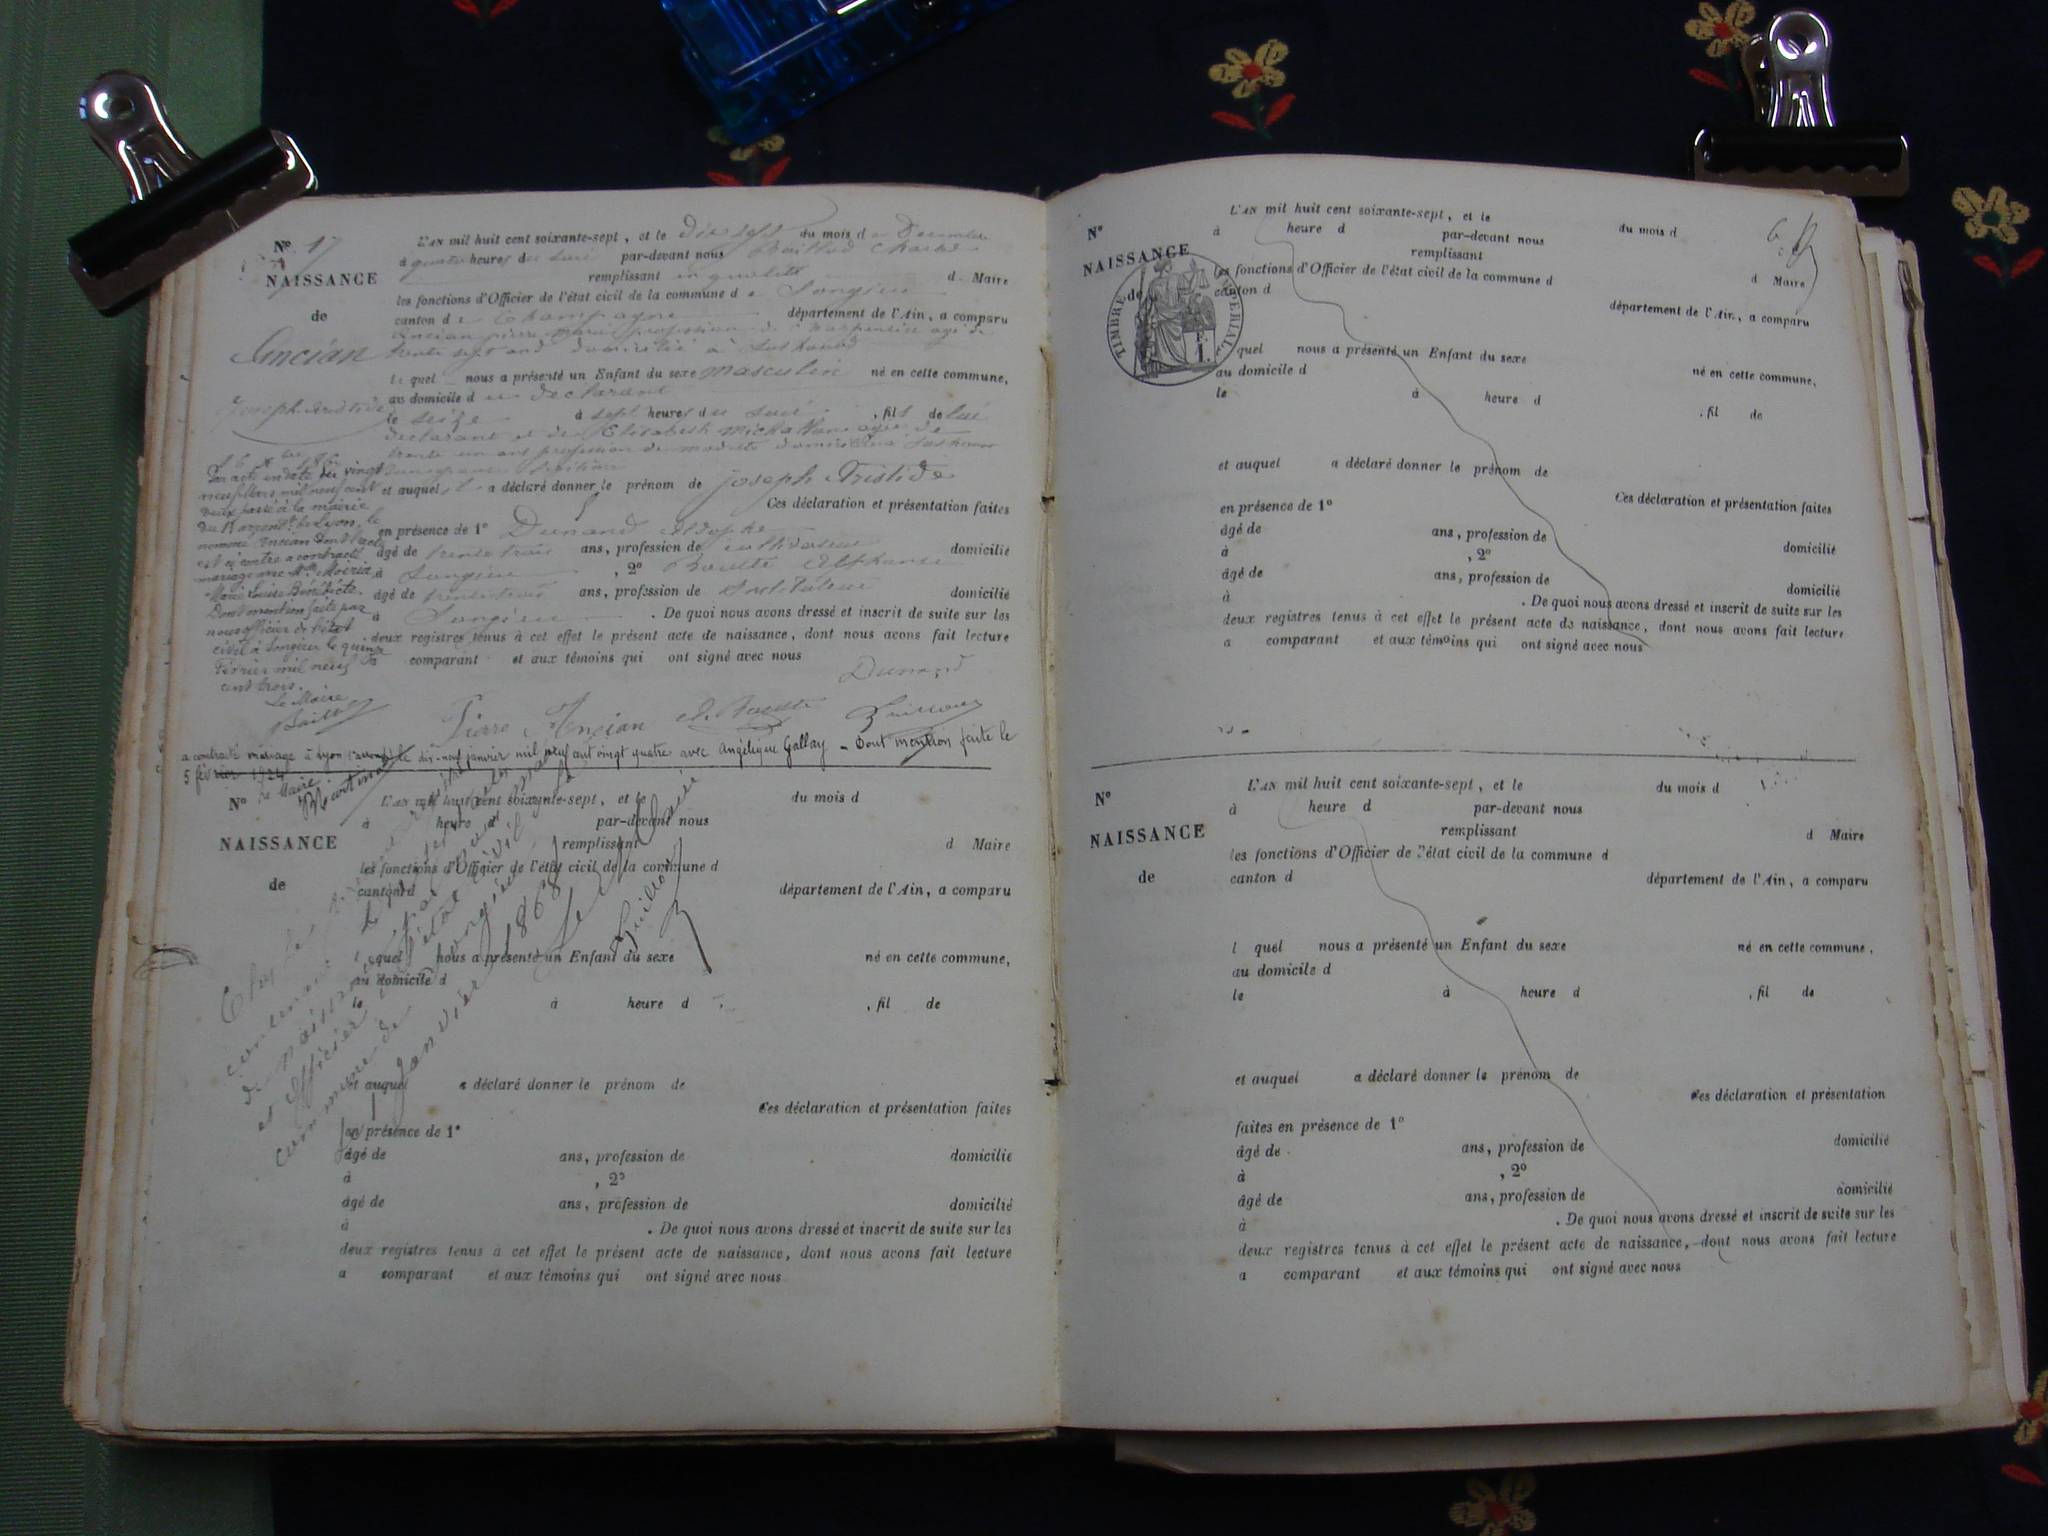 N° 17
NAISSANCE
de
Ancian
Joseph Aristide
L'AN mil huit cent soixante-sept, et le dix sept du mois de Décembre
à quatre heures du soir par-devant nous Charles
remplissant en qualité d Maire
les fonctions d'Officier de l'état civil de la commune de Songieu
canton de Champagne département de l'Ain, a comparu
Ancian pierre marie profession de charpentier agé de
trente sept ans domicilié à
le quel nous a présenté un Enfant du sexe masculin né en cette commune,
au domicile du déclarant
le seize à sept heures du soir, fils de lui
déclarant et de Elisabeth agée de
trente un ans profession de modiste domiciliée
et auquel il a déclaré donner le prénom de joseph Aristide
Ces déclaration et présentation faites
en présence de 1° Dunand Adolphe
âgé de trente trois ans, profession de cultivateur domicilié
à Songieu, 2° Alphonse
âgé de trente trois ans, profession de instituteur domicilié
à Songieu. De quoi nous avons dressé et inscrit de suite sur les
deux registres tenus à cet effet le présent acte de naissance, dont nous avons fait lecture
a comparant et aux témoins qui ont signé avec nous
Dunand
Pierre Ancian
Par acte en date du vingt
neuf mil neuf cent
deux passé à la mairie
du arrondt de Lyon, le
nommé Ancian dont l'acte
est ci contre a contracté
mariage avec Mlle
Marie Louise Bénédicte.
Dont mention faite par
nous officier de l'état
civil à Songieu le quinze
Février mil neuf
cent trois.
Le Maire
a contracté mariage à Lyon le dix-neuf janvier mil neuf cent vingt quatre avec Angélique Gallay - Dont mention faite le
5 février 1924
Le Maire
N°
NAISSANCE
de
L'AN mil huit cent soixante-sept, et le du mois d
à heure d par-devant nous
remplissant d Maire
les fonctions d'Officier de l'état civil de la commune d
canton d département de l'Ain, a comparu
l quel nous a présenté un Enfant du sexe né en cette commune,
au domicile d
le à heure d , fil de
et auquel a déclaré donner le prénom de
Ces déclaration et présentation faites
en présence de 1°
âgé de ans, profession de domicilié
à , 2°
âgé de ans, profession de domicilié
à . De quoi nous avons dressé et inscrit de suite sur les
deux registres tenus à cet effet le présent acte de naissance, dont nous avons fait lecture
a comparant et aux témoins qui ont signé avec nous
de naissance
et officier de l'état civil
commune de Songieu
janvier 1868
N°
NAISSANCE
de
TIMBRE IMPERIAL
F.
1.
L'AN mil huit cent soixante-sept, et le du mois d
à heure d par-devant nous
remplissant
les fonctions d'Officier de l'état civil de la commune d d Maire
canton d département de l'Ain, a comparu
quel nous a présenté un Enfant du sexe
au domicile d né en cette commune,
le à heure d , fil de
et auquel a déclaré donner le prénom de
Ces déclaration et présentation faites
en présence de 1°
âgé de ans, profession de domicilié
à , 2°
âgé de ans, profession de domicilié
à . De quoi nous avons dressé et inscrit de suite sur les
deux registres tenus à cet effet le présent acte de naissance, dont nous avons fait lecture
a comparant et aux témoins qui ont signé avec nous
N°
NAISSANCE
de
L'AN mil huit cent soixante-sept, et le du mois d
à heure d par-devant nous
remplissant d Maire
les fonctions d'Officier de l'état civil de la commune d
canton d département de l'Ain, a comparu
l quel nous a présenté un Enfant du sexe né en cette commune,
au domicile d
le à heure d , fil de
et auquel a déclaré donner le prénom de
Ces déclaration et présentation
faites en présence de 1°
âgé de ans, profession de domicilié
à , 2°
âgé de ans, profession de domicilié
à . De quoi nous avons dressé et inscrit de suite sur les
deux registres tenus à cet effet le présent acte de naissance, dont nous avons fait lecture
a comparant et aux témoins qui ont signé avec nous